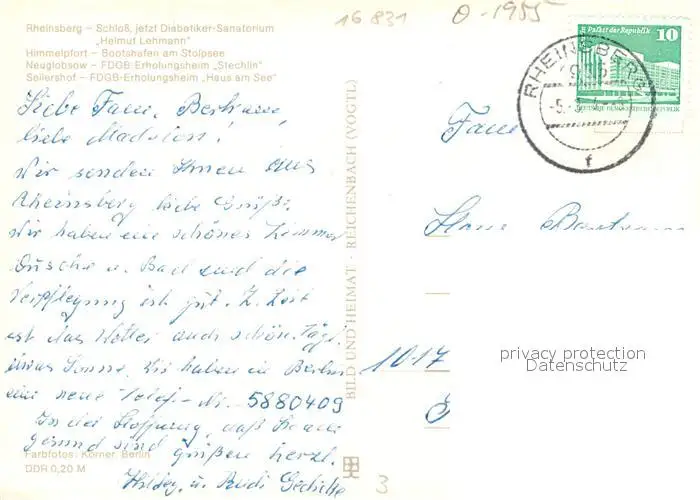 16 831
0-1955
Rheinsberg – Schloß, jetzt Diabetiker-Sanatorium
„Helmut Lehmann"
Himmelpfort – Bootshafen am Stolpsee
Neuglobsow – FDGB-Erholungsheim „Stechlin"
Seilershof – FDGB-Erholungsheim „Haus am See"
Liebe Fam.
liebe
Wir senden Ihnen aus
Rheinsberg liebe Grüße.
Wir haben ein schönes Zimmer
Dusche u. Bad und die
Verpflegung ist gut. Z. Zeit
ist das Wetter auch schön. Tägl.
etwas Sonne. Wir haben in Berlin
eine neue Telef.-Nr. 5880409
In der Hoffnung, daß Sie alle
gesund sind grüßen herzl.
u. Rudi
Farbfotos: Körner, Berlin
DDR 0,20 M
BILD UND HEIMAT · REICHENBACH (VOGTL)
Palast der Republik
10
RHEINSBERG
1955
f
Fam
1017
3
privacy protection
Datenschutz